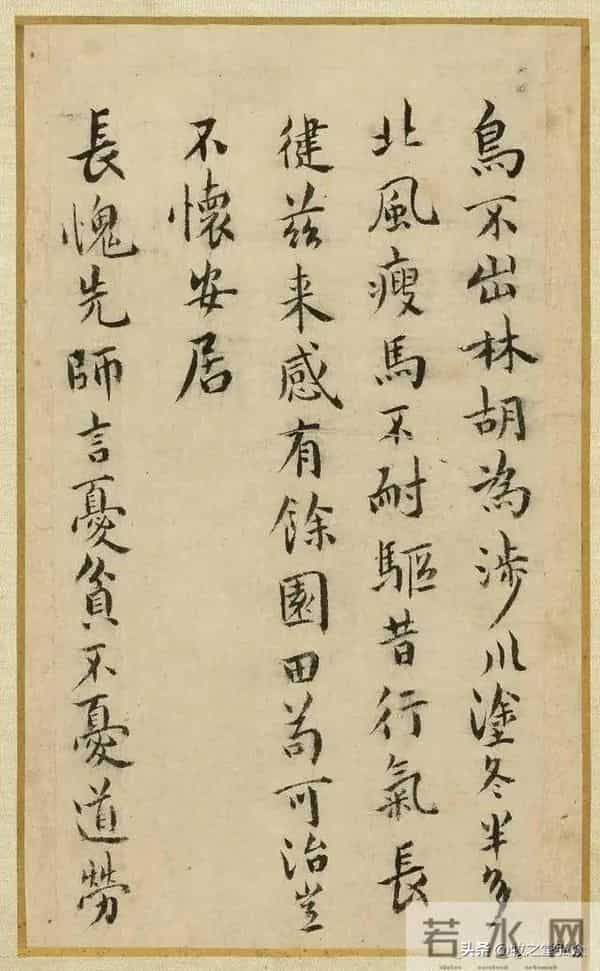 鳥不出林胡為涉川塗冬半多
北風瘦馬不耐驅昔行氣長
健茲来感有餘園田苟可治豈
不懷安居
長愧先師言憂貧不憂道勞
若水网
头条